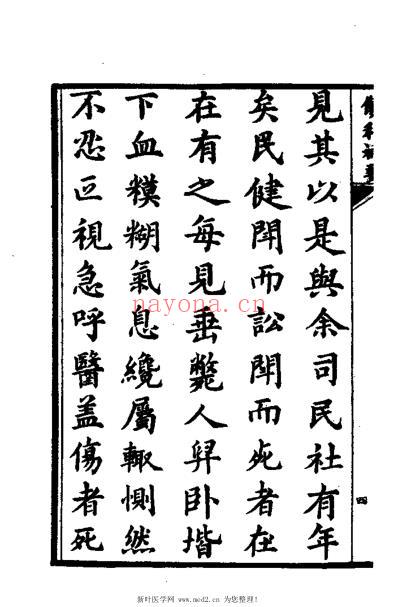 傷科補要
見其以是與余司民社有年
矣民健鬪而訟鬪而死者在
在有之每見垂斃人舁卧堦
下血糢糊氣息纔屬輙惻然
不忍正視急呼醫盖傷者死
四
nayona.cn
新叶医学网 www.med2.cn 为您整理!